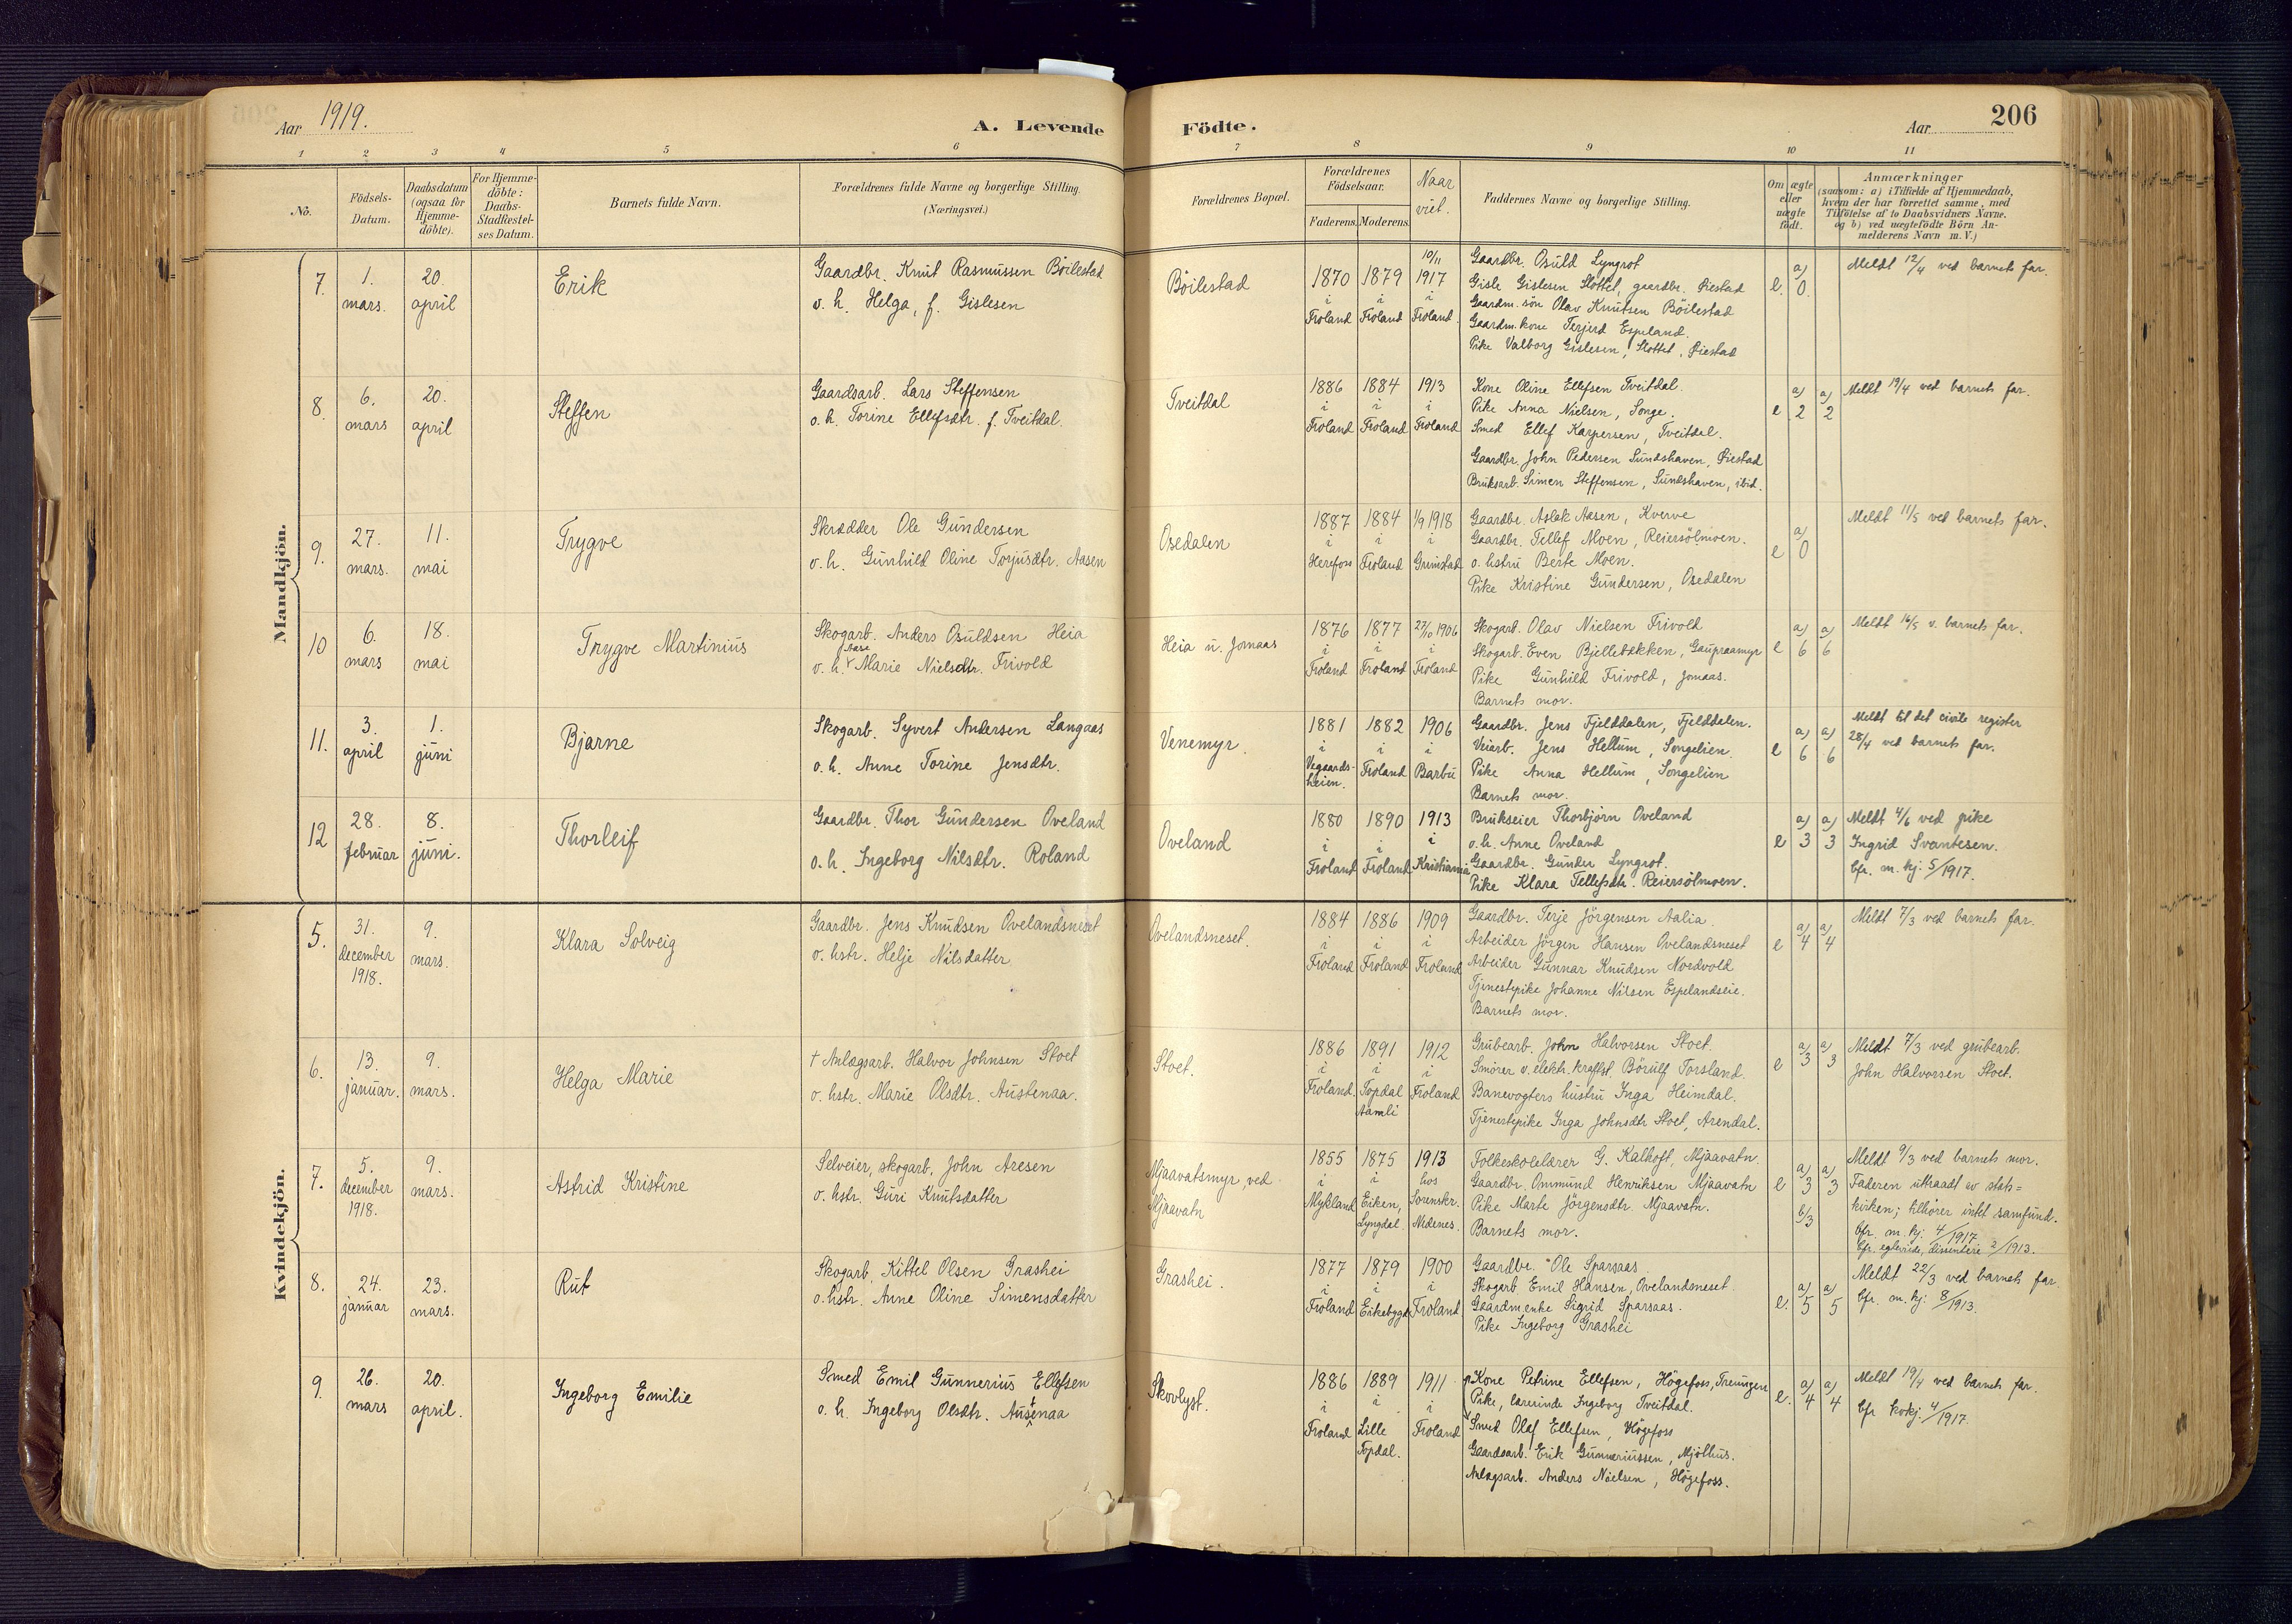 Aar 1919.
A. Levende Födte.
Aar
206
1 2 3 4 5 6 7 8 9 10 11
No.
Födsels-Datum.
Daabsdatum (ogsaa for Hjemme-döbte).
For Hjemme-döbte: Daabs-Stadfæstel-ses Datum.
Barnets fulde Navn.
Forældrenes fulde Navne og borgerlige Stilling. (Næringsvei.)
Forældrenes Bopæl.
Forældrenes Födselsaar.
Faderens. Moderens.
Naar viet.
Faddernes Navne og borgerlige Stilling.
Om ægte eller uægte født.
Anmærkninger
(saasom: a) i Tilfælde af Hjemmedaab,
hvem der har forrettet samme, med
Tilföielse af to Daabsvidners Navne.
og b) ved uægtefödte Börn An-
melderens Navn m. V.)
Mandkjön.
7. 1. mars. 20. april
Erik
Gaardbr. Knut Rasmussen Böilestad
o. h. Helga, f. Gislesen
Böilestad
1870 i Froland
1879 i Froland
10/11 1917 i Froland.
Gaardbr. Osuld Lyngrot
Gisle Gislesen Slottet, gaardbr. Riestad
Gaardm. sön Olav Knutsen Böilestad
Gaardm. kone Terjerd Espeland.
Pike Valborg Gislesen, Slottet, Riestad
e. a) 0.
Meldt 12/4 ved barnets far.
8. 6. mars 20. april
Steffen
Gaardsarb. Lars Steffensen
o. h. Torine Ellefsdtr. f. Tveitdal.
Tveitdal
1886 i Froland
1884 i Froland
1913 i Froland
Kone Oline Ellefsen Tveitdal.
Pike Anna Nielsen, Songe.
Smed Ellef Kaspersen, Tveitdal.
Gaardbr. John Pedersen Sundshaven, Riestad
Bruksarb. Simen Steffensen, Sundshaven, ibid.
e a) 2 a) 2
Meldt 19/4 ved barnets far.
9. 27. mars. 11. mai
Trygve
Skrædder Ole Gundersen
o. h. Gunhild Oline Torjusdtr. Aasen
Osedalen
1887 i Herefoss
1884 i Froland
1/9 1918 i Grimstad
Gaardbr. Aslak Aasen, Kverve
Gaardbr. Tellef Moen, Reiersölmoen.
o. hstru Berte Moen.
Pike Kristine Gundersen, Osedalen
e a) 0
Meldt 11/5 ved barnets far.
10 6. mars 18. mai
Trygve Martinius
Skogarb. Anders Osuldsen Heia
o. h. Aase Marie Nielsdtr. Frivold
Heia u. Jomaas
1876 i Froland
1877 i Froland
27/10 1906 i Froland
Skogarb. Olav Nielsen Frivold
Skogarb. Even Bjellebekken, Gaupraamyr
Pike Gunhild Frivold, Jomaas.
Barnets mor.
e a) 6 a) 6
Meldt 16/5 v. barnets far.
11. 3. april 1. juni
Bjarne
Skogarb. Syvert Andersen Langaas
o. h. Anne Torine Jensdtr.
Venemyr.
1881 i Vegaards-heien.
1882 i Froland
1906 i Barbu
Gaardbr. Jens Fjelddalen, Fjelddalen.
Veiarb. Jens Hellum, Songelien.
Pike Anna Hellum, Songelien
Barnets mor.
e a) 6 a) 6
Meldt til det civile register
28/4 ved barnets far.
12 28. februar 8. juni.
Thorleif
Gaardbr. Thor Gundersen Oveland
o. h. Ingeborg Nilsdtr. Roland
Oveland
1880 i Froland
1890 i Froland
1913 i Kristiania
Brukseier Thorbjörn Oveland
o. h. Anne Oveland
Gaardbr. Gunder Lyngrot.
Pike Klara Tellefsdtr. Reiersölmoen.
e a) 3 a) 3
Meldt 4/6 ved pike
Ingrid Svantesen.
Cfr. m. kj. 5/1917.
Kvindekjön.
5. 31. december 1918. 9. mars.
Klara Solveig
Gaardbr. Jens Knudsen Ovelandsneset
o. hstr. Helje Nilsdatter
Ovelandsneset.
1884 i Froland
1886 i Froland
1909 i Froland
Gaardbr. Terje Jörgensen Aalia
Arbeider Jörgen Hansen Ovelandsneset
Arbeider Gunnar Knudsen Nordvold
Tjenestepike Johanne Nilsen Espelandseie.
Barnets mor.
e a) 4 a) 4
Meldt 7/3 ved barnets far.
6. 13. januar. 9. mars.
Helga Marie
† Anlægsarb. Halvor Johnsen Stoet
o. hstr. Marie Olsdtr. Austenaa.
Stoet.
1886 i Froland.
1891 i Topdal Aamli
1912 i Froland
Grubearb. John Halvorsen Stoet.
Smörer v. elektr. kraftst. Börulf Torsland.
Banevogters hustru Inga Heimdal.
Tjenestepike Inga Johnsdtr Stoet, Arendal.
e a) 3 a) 3
Meldt 7/3 ved grubearb.
John Halvorsen Stoet.
7. 5. december 1918. 9. mars.
Astrid Kristine
Selveier, skogarb. John Aresen
o. hstr. Guri Knutsdatter
Mjaavatsmyr, ved
Mjaavatn
1855 i Mykland
1875 i Eiken, Lyngdal
1913 hos Sorenskr. Nedenes.
Folkeskolelærer G. Kalhoft, Mjaavatn.
Gaardbr. Ommund Henriksen Mjaavatn
Pike Marte Jörgensdtr. Mjaavatn.
Barnets mor.
e a) 3 a) 3 b/3
Meldt 9/3 ved barnets mor.
Faderen uttraadt av stats=
kirken; tilhører intet samfund.
Cfr. m. kj. 4/1917
Cfr. egteviede, dissentere 2/1913.
8. 24. januar 23. mars.
Rut
Skogarb. Kittel Olsen Grashei
o. hstr. Anne Oline Simensdatter
Grashei.
1877 i Froland
1879 i Eikebygd
1900 i Froland
Gaardbr. Ole Sparsaas
Skogarb Emil Hansen, Ovelandsneset
Gaardmenke Sigrid Sparsaas.
Pike Ingeborg Grashei
e. a) 5 a) 5
Meldt 22/3 ved barnets far
Cfr. m. kj. 8/1913.
9. 26. mars 20. april.
Ingeborg Emilie
Smed Emil Gunnerius Ellefsen
o. h. Ingeborg Olsdtr. Austenaa
Skovlyst.
1886 i Froland
1889 i Lille Topdal.
1911 i Froland
Kone Petrine Ellefsen, Högefoss, Treungen
Pike, lærerinde Ingeborg Tveitdal.
Smed Olaf Ellefsen, Högefoss
Gaardsarb. Erik Gunneriussen, Mjölhus.
Anlægsarb. Anders Nielsen, Högefoss.
e. a) 4 a) 4
Meldt 19/4 ved barnets far.
Cfr kvkj. 4/1917.